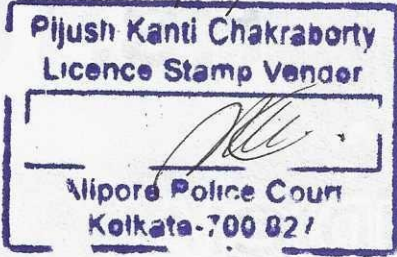 Pijush Kanti Chakraborty
Licence Stamp Vendor
Alipore Police Court
Kolkata-700 027